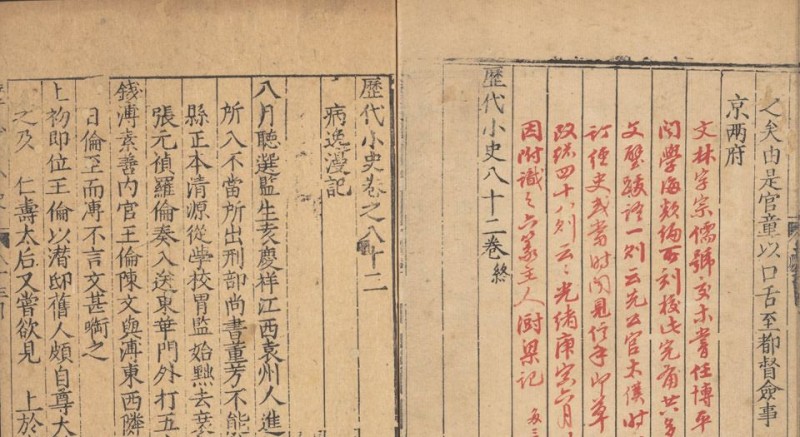 之矣由是官童以口舌至都督僉事
京两府
文林字宗儒號交木嘗任博平
閱學海類編所刻校此完備廿六
文璧跋謂一則云先公官太僕時
訂經史或當時聞見信手即草
改瑞四十八則云云光緒庚寅六月
因附識之六篆主人尉梁記
歷代小史八十二卷終
歷代小史卷之八十二
病逸漫記
八月聽選監生亥慶祥江西袁州人進
所入不當所出刑部尚書董芳不能
縣正本清源從學校胃監始黜去衰
張元禎羅倫奏入送東華門外打五
錢溥素善内官王倫陳文與溥東西隣
日倫至而溥不言文甚啣之
上初即位王倫以潜邸舊人頗自尊大
之及 仁壽太后又嘗欲見 上於